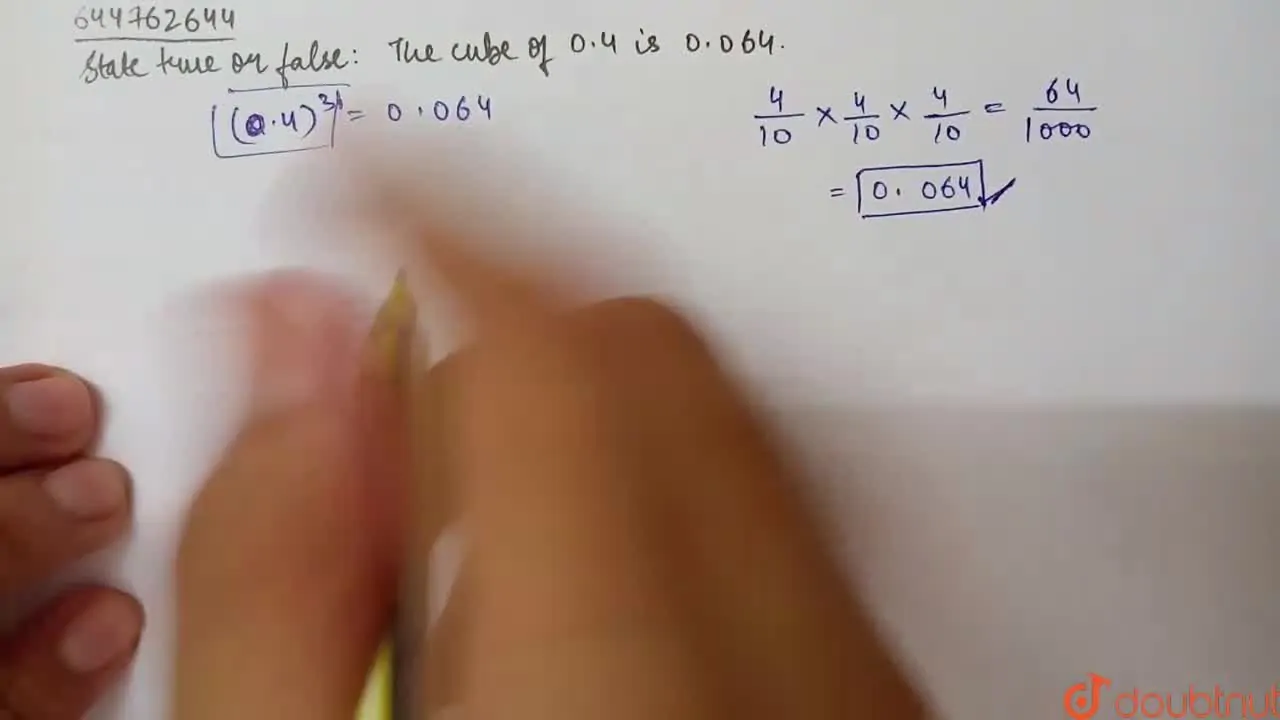 644762644
State true or false: The cube of 0.4 is 0.064.
(0.4)³ = 0.064
4/10 × 4/10 × 4/10 = 64/1000
= 0.064 ✓
doubtnut